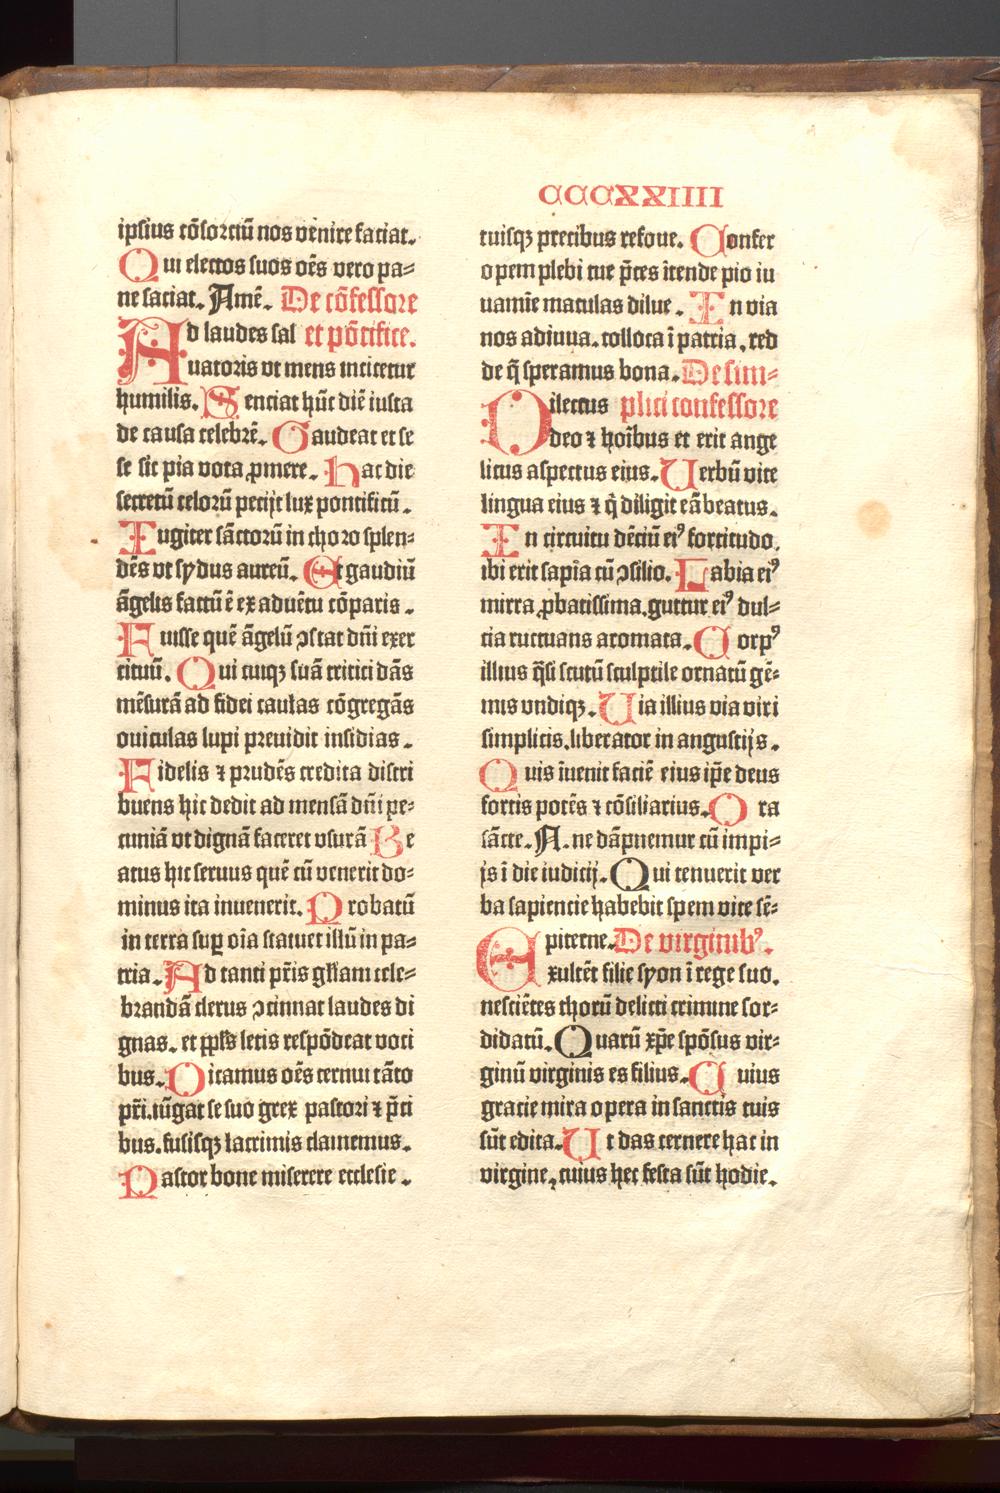 CCCXXIIII
ipsius cõsorciũ nos venire faciat.
Qui electos suos oẽs vero pa⸗
ne saciat. Amẽ. De cõfessore
Ad laudes sal et põtifice.
uatoris vt mens incitetur
humilis. Senciat hũc diẽ iusta
de causa celebrẽ. Gaudeat et se
se sic pia vota ꝓmere. Hac die
secretũ celorũ petijt lux pontificũ.
Iugiter sãctorũ in choro splen⸗
dẽs vt sydus aureũ. Et gaudiũ
ãgelis factũ ẽ ex aduẽtu cõparis.
Fuisse quẽ ãgelũ ↄstat dñi exer
cituũ. Qui cuiqꝫ suã critici dãs
mẽsurã ad fidei caulas cõgregãs
ouiculas lupi preuidit insidias.
Fidelis ⁊ prudẽs credita distri
buens hic dedit ad mensã dñi pe⸗
cuniã vt dignã faceret vsurã Be
atus hic seruus quẽ cũ venerit do⸗
minus ita inuenerit. Probatũ
in terra suꝑ oĩa statuet illũ in pa⸗
tria. Ad tanti pr̃is gl̃iam cele⸗
brandã clerus ↄcinnat laudes di
gnas. et ppl̃s letis respõdeat voci
bus. Dicamus oẽs cernui tãto
pr̃i. iũgat se suo grex pastori ⁊ p̃ci
bus. fusisqꝫ lacrimis clamemus.
Pastor bone miserere ecclesie.
tuisqꝫ precibus refoue. Confer
opem plebi tue p̃ces ĩtende pio iu
uamĩe maculas dilue. In via
nos adiuua. colloca ĩ patria. red
de q̃ speramus bona. De sim⸗
Dilectus plici confessore
deo ⁊ hoĩbus et erit ange
licus aspectus eius. Verbũ vite
lingua eius ⁊ q̃ diligit eã beatus.
In circuitu dẽciũ eiꝰ fortitudo.
ibi erit sapĩa cũ ↄsilio. Labia eiꝰ
mirra ꝓbatissima. guttur eiꝰ dul⸗
cia ructuans aromata. Corpꝰ
illius q̃si scutũ sculptile ornatũ gẽ⸗
mis vndiqꝫ. Via illius via viri
simplicis. liberator in angustijs.
Quis ĩuenit faciẽ eius ip̃e deus
fortis potẽs ⁊ cõsiliarius. Ora
sãcte. A. ne dãpnemur cũ impi⸗
js ĩ die iudicij. Qui tenuerit ver
ba sapiencie habebit spem vite sẽ⸗
piterne. De virginibꝰ.
Exultẽt filie syon ĩ rege suo.
nesciẽtes thorũ delicti crimine sor⸗
didatũ. Quarũ xp̃e spõsus vir⸗
ginũ virginis es filius. Cuius
gracie mira opera in sanctis tuis
sũt edita. Vt das cernere hac in
virgine, cuius hec festa sũt hodie.